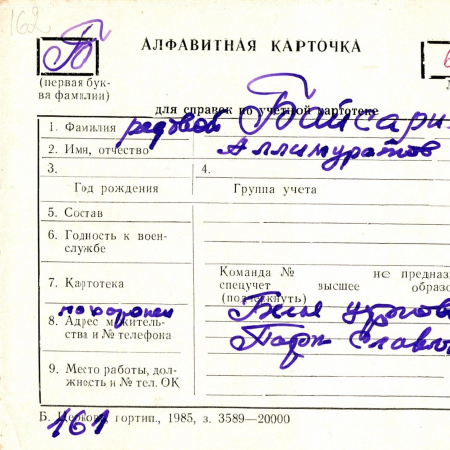 162
Б
АЛФАВИТНАЯ КАРТОЧКА
(первая бук-
ва фамилии)
для справок по учетной картотеке
1. Фамилия рядовой Байсари
2. Имя, отчество Аллимуратов
3. 4.
Год рождения Группа учета
5. Состав
6. Годность к воен-
службе
Команда № не предназ
7. Картотека спецучет высшее образо
(подчеркнуть)
похоронен
8. Адрес м жительь-
ства и № телефона
Парк Славы
9. Место работы, дол-
жность и № тел. ОК
Б. Церков. гортип., 1985, з. 3589—20000
161